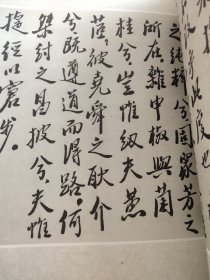 之純粹兮固眾芳之
所在雜申椒與菌
桂兮豈惟紉夫蕙
茝彼堯舜之耿介
兮既遵道而得路何
桀紂之昌披兮夫惟
捷徑以窘步